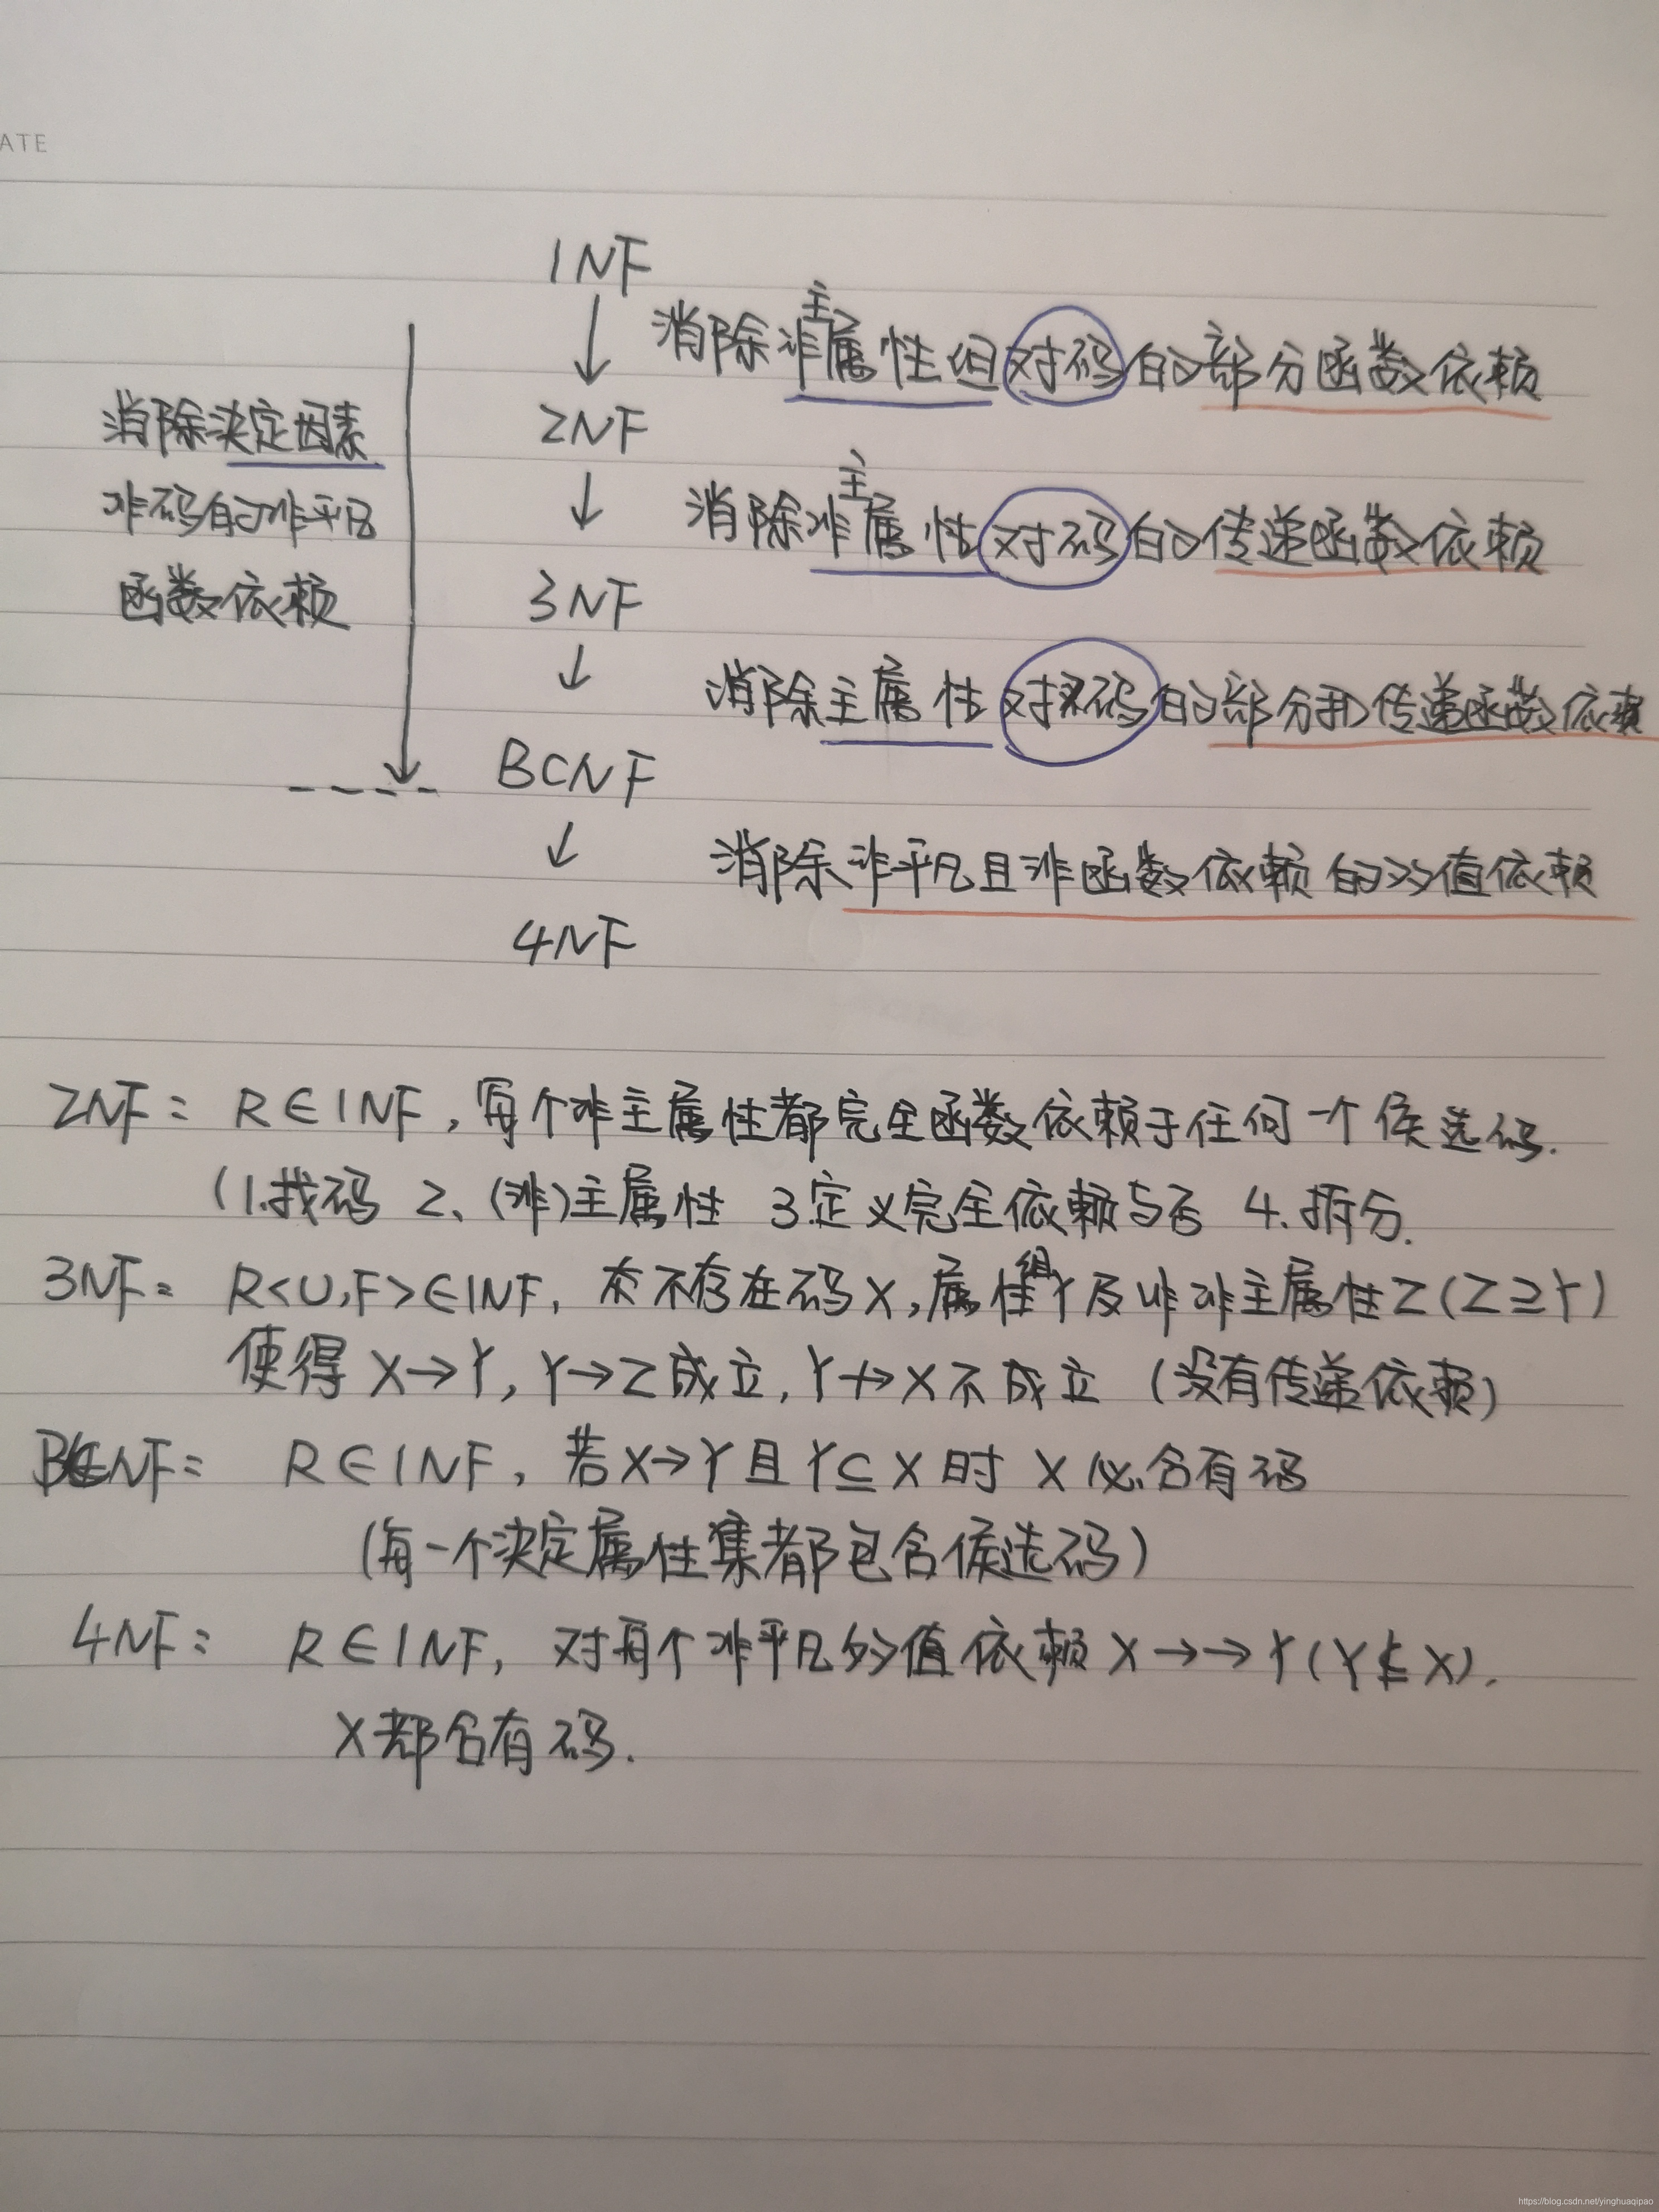 ATE
1NF
消除非主属性组对码的部分函数依赖
消除决定因素
2NF
非码的非平凡
消除非主属性对码的传递函数依赖
函数依赖
3NF
消除主属性对码的部分和传递函数依赖
BCNF
消除非平凡且非函数依赖的多值依赖
4NF
2NF: R∈1NF,每个非主属性都完全函数依赖于任何一个候选码.
(1.找码 2、(非)主属性 3.定义完全依赖与否 4.拆分.
3NF: R<U,F>∈1NF, 不存在码X,属性组Y及非主属性Z(Z⊇Y)
使得X→Y,Y→Z成立,Y↛X不成立 (没有传递依赖)
BCNF: R∈1NF, 若X→Y且Y⊆X时 X必含有码
(每一个决定属性集都包含候选码)
4NF: R∈1NF, 对每个非平凡多值依赖X→→Y(Y⊈X).
X都含有码.
https://blog.csdn.net/yinghuaqipao